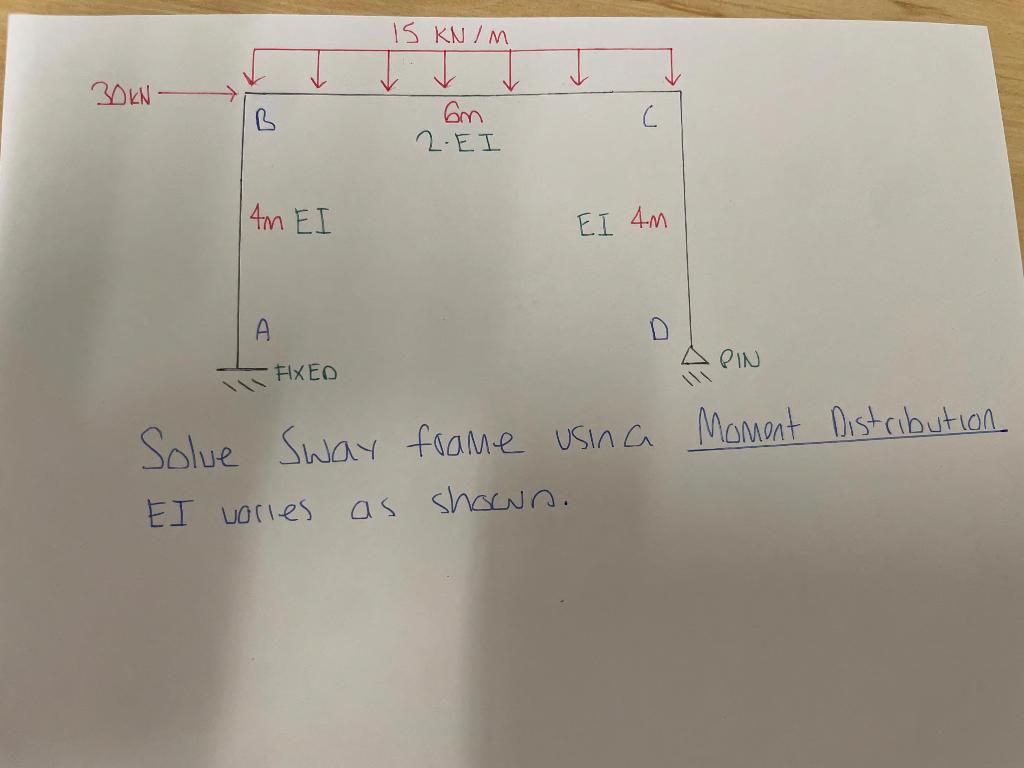 15 KN/M
30KN
B
6m
C
2·EI
4m EI
EI 4m
A
D
FIXED
PIN
Solve Sway frame using Moment Distribution
EI varies as shown.